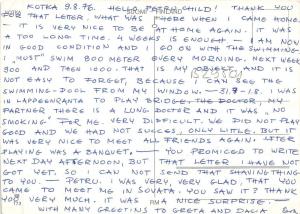 KOTKA 9.8.96. HELLO, PETRA-CHILD! THANK YOU
FOR THAT LETTER, WHAT WAS THERE WHEN I CAME HOME.
– IT IS VERY NICE TO BE AT HOME AGAIN. IT WAS
A TOO LONG TIME. 4 WEEKS IS ENOUGH – I AM NOW
IN GOOD CONDITION AND I GO ON WITH THE SWIMMING.
I "MUST" SWIM 800 METER EVERY MORNING. NEXT WEEK
900 AND THEN 1000. THAT IS MY OBJECT, AND IT IS
NOT EASY TO FORGET, BECAUSE I CAN SEE THE
SWIMMING-POOL FROM MY WINDOW. – 31.7-1.8. I WAS
IN LAPPEENRANTA TO PLAY BRIDGE. THE DOCTOR, MY
PARTNER THERE IS A LUNG DOCTOR AND IT WAS „NO
SMOKING" FOR ME. VERY DIFFICULT. WE DID NOT PLAY
GOOD AND WE HAD NOT SUCCES, ONLY LITTLE. BUT IT
WAS VERY NICE TO MEET ALL FRIENDS AGAIN. AFTER
PLAYING WAS A BANQUET. – YOU PROMICED TO WRITE
NEXT DAY AFTERNOON, BUT THAT LETTER I HAVE NOT
GOT YET. SO I CAN NOT SEND THAT SHAVING THING
TO YOU. – PETRU. I WAS VERY, VERY GLAD, THAT YOU
CAME TO MEET ME IN SOVATA. YOU SAW IT? THANK
YOU VERY MUCH, IT WAS A NICE SURPRISE. –
WITH MANY GREETINGS TO GRETA AND DACIA.